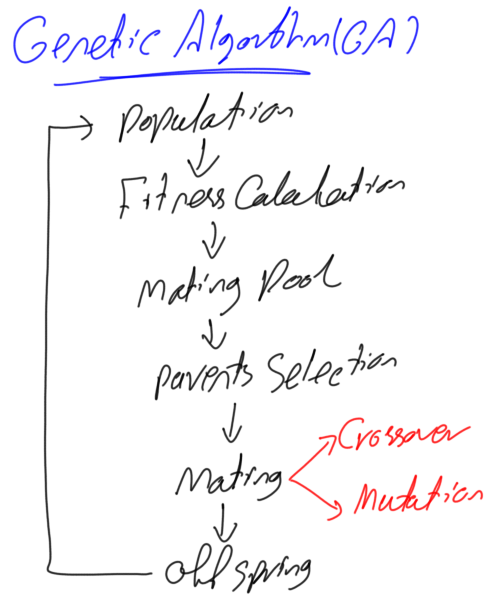 Genetic Algorithm(GA)
Population
Fitness Calculation
Mating Pool
Parents Selection
Mating
Crossover
Mutation
Offspring